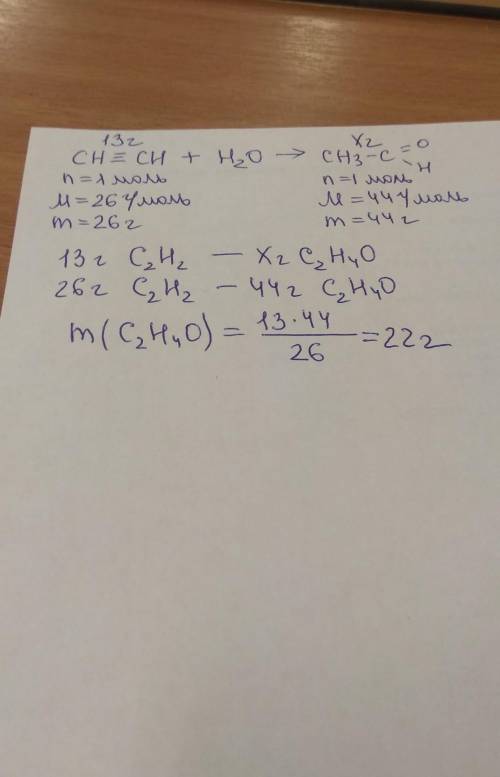 13г Xг
CH≡CH + H₂O → CH3-C =O
H
n=1 моль n=1 моль
M=26 г/моль M=44 г/моль
m=26г m=44г
13г C₂H₂ — Xг C₂H₄O
26г C₂H₂ — 44г C₂H₄O
m(C₂H₄O) = 13·44 / 26 = 22г